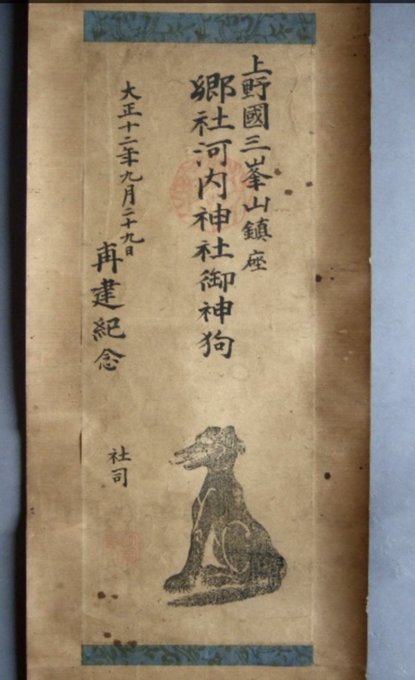 上野國三峯山鎮座
郷社河内神社御神狗
大正十二年九月二十九日
再建紀念
社司